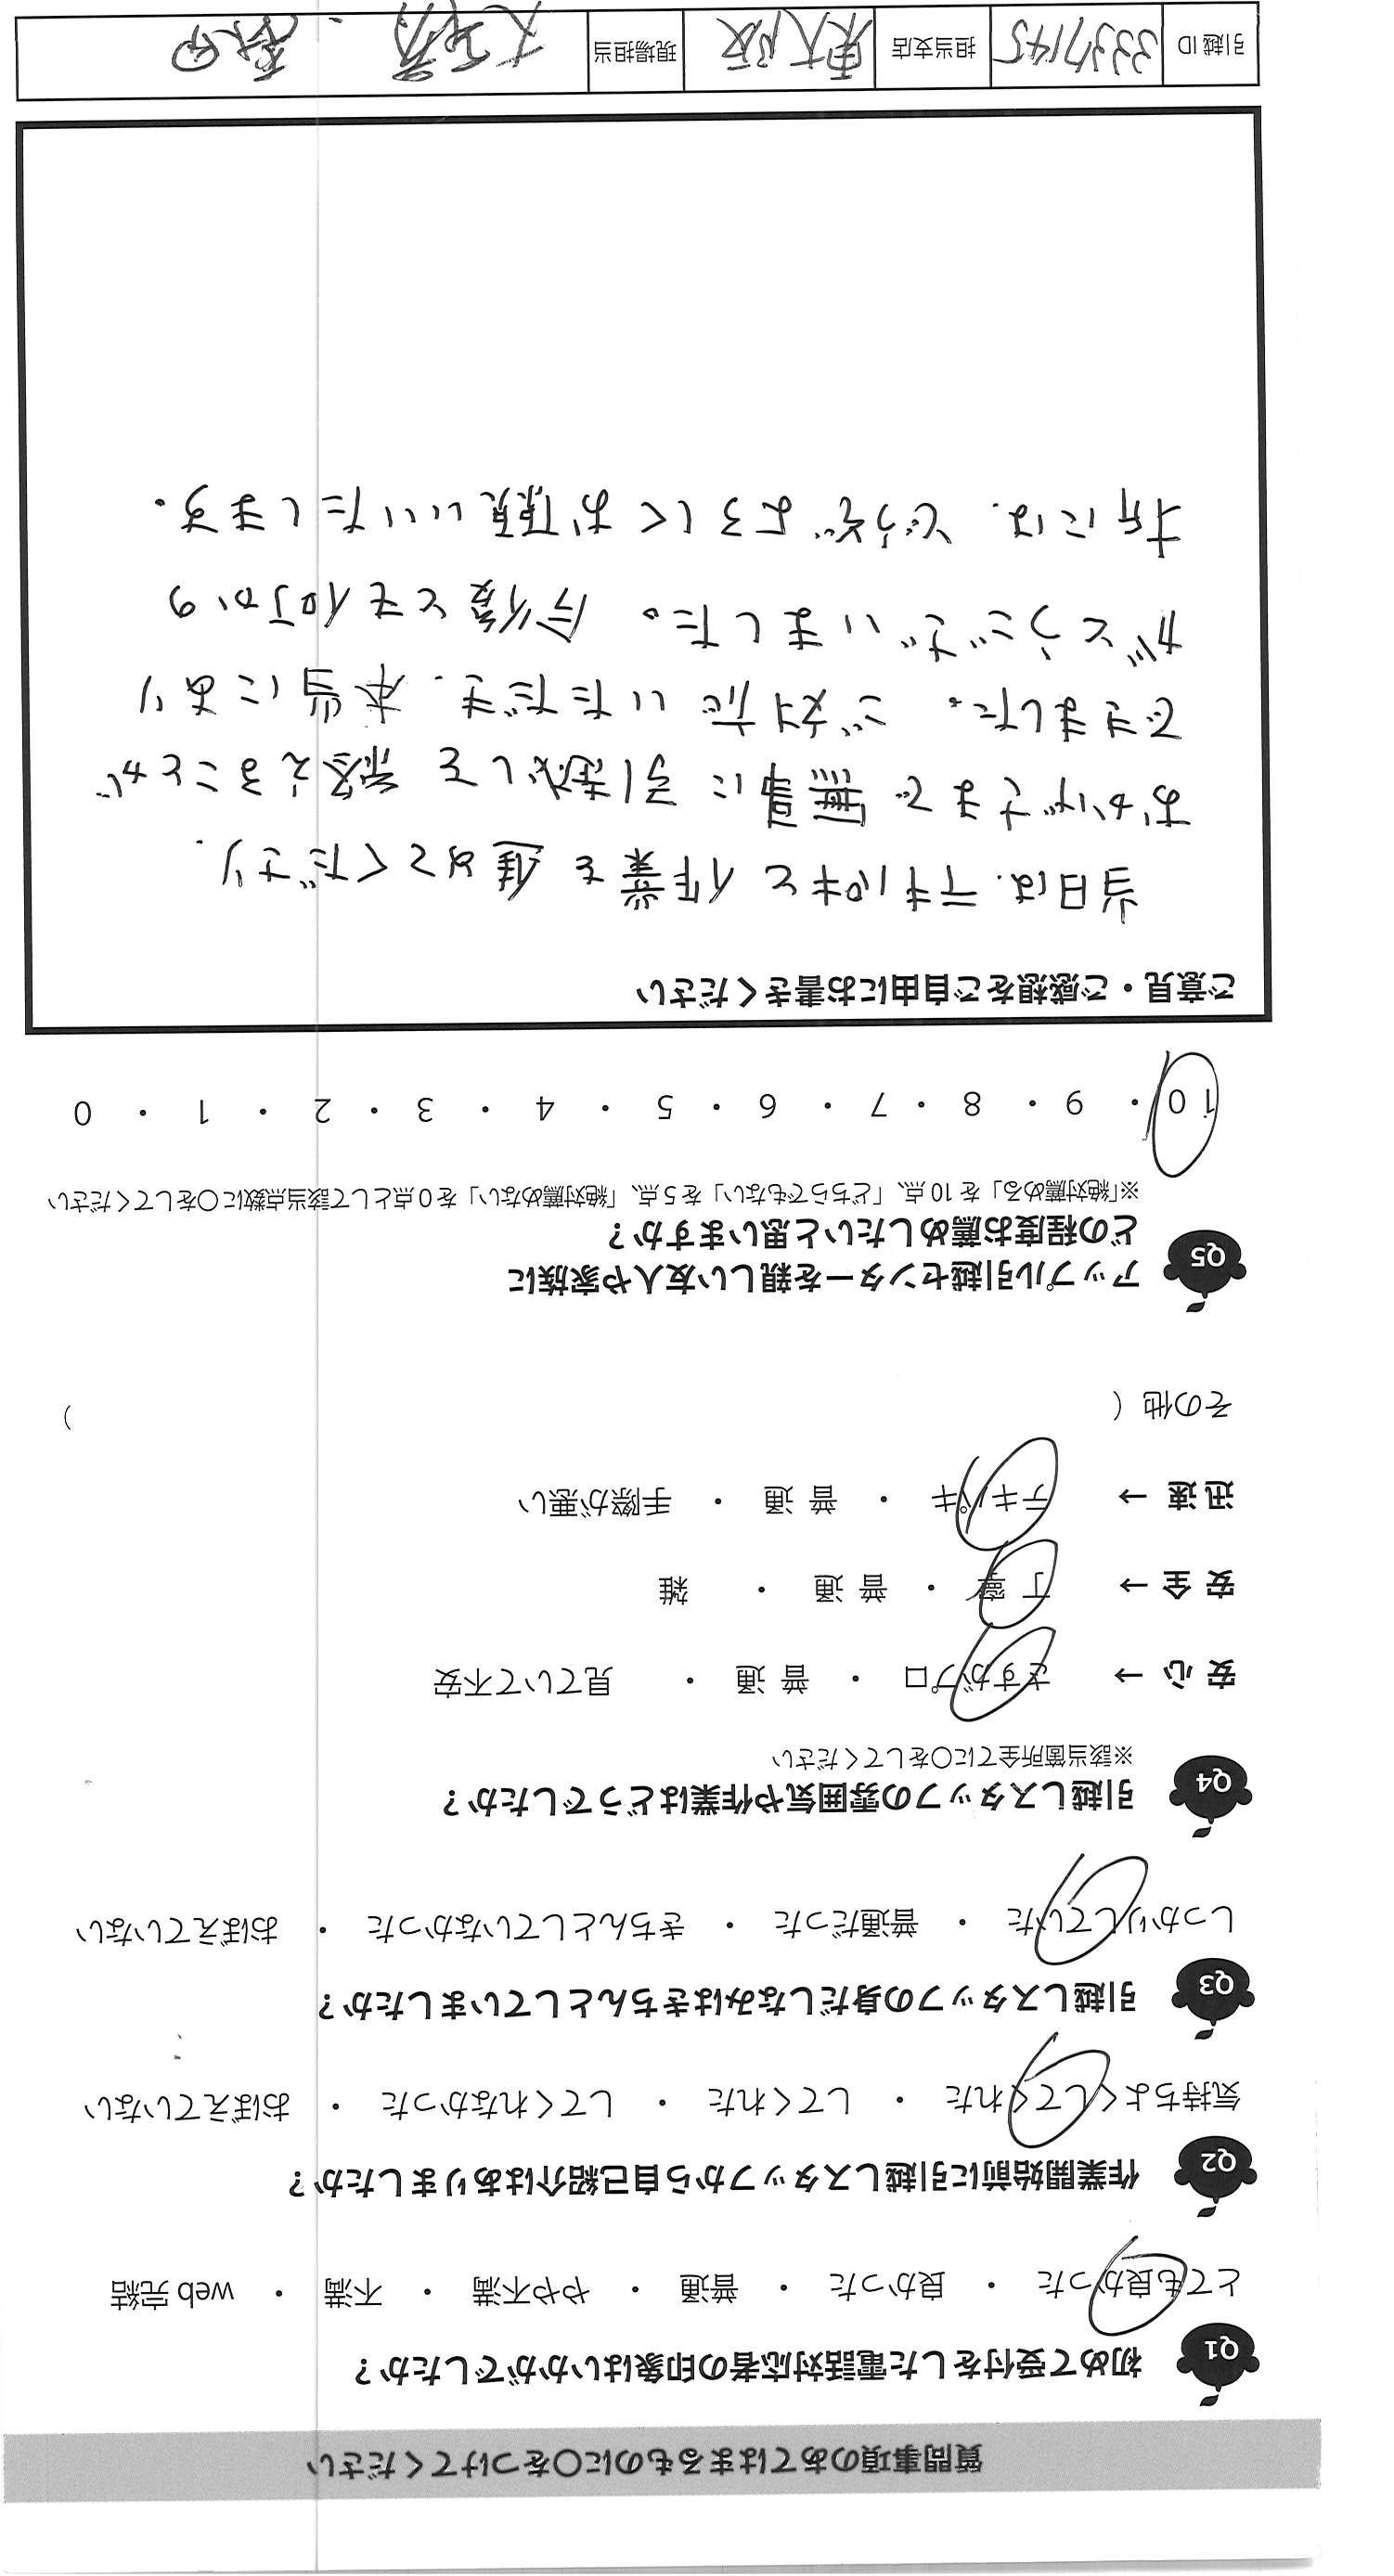 質問事項のあてはまるものに〇をつけてください
Q1 初めて受付をした電話対応者の印象はいかがでしたか？
とても良かった ・ 良かった ・ 普通 ・ やや不満 ・ 不満 ・ web 完結
Q2 作業開始前に引越しスタッフから自己紹介はありましたか？
気持ちよくしてくれた ・ してくれた ・ してくれなかった ・ おぼえていない
Q3 引越しスタッフの身だしなみはきちんとしていましたか？
しっかりしていた ・ 普通だった ・ きちんとしていなかった ・ おぼえていない
Q4 引越しスタッフの雰囲気や作業はどうでしたか？
※該当箇所全てに〇をしてください
安心 → さすがプロ ・ 普通 ・ 見ていて不安
安全 → 丁寧 ・ 普通 ・ 雑
迅速 → テキパキ ・ 普通 ・ 手際が悪い
その他 （ ）
Q5 アップル引越センターを親しい友人や家族に
どの程度お薦めしたいと思いますか？
※「絶対薦める」を 10 点、「どちらでもない」を 5 点、「絶対薦めない」を 0 点として該当点数に〇をしてください
10 ・ 9 ・ 8 ・ 7 ・ 6 ・ 5 ・ 4 ・ 3 ・ 2 ・ 1 ・ 0
ご意見・ご感想をご自由にお書きください
当日は、テキパキと作業を進めてくださり、
おかげさまで無事に引越しを終えることが
できました。ご対応いただき、本当にあり
がとうございました。今後とも何かの
折には、どうぞよろしくお願いいたします。
引越 ID 3337145 担当支店 東大阪 現場担当